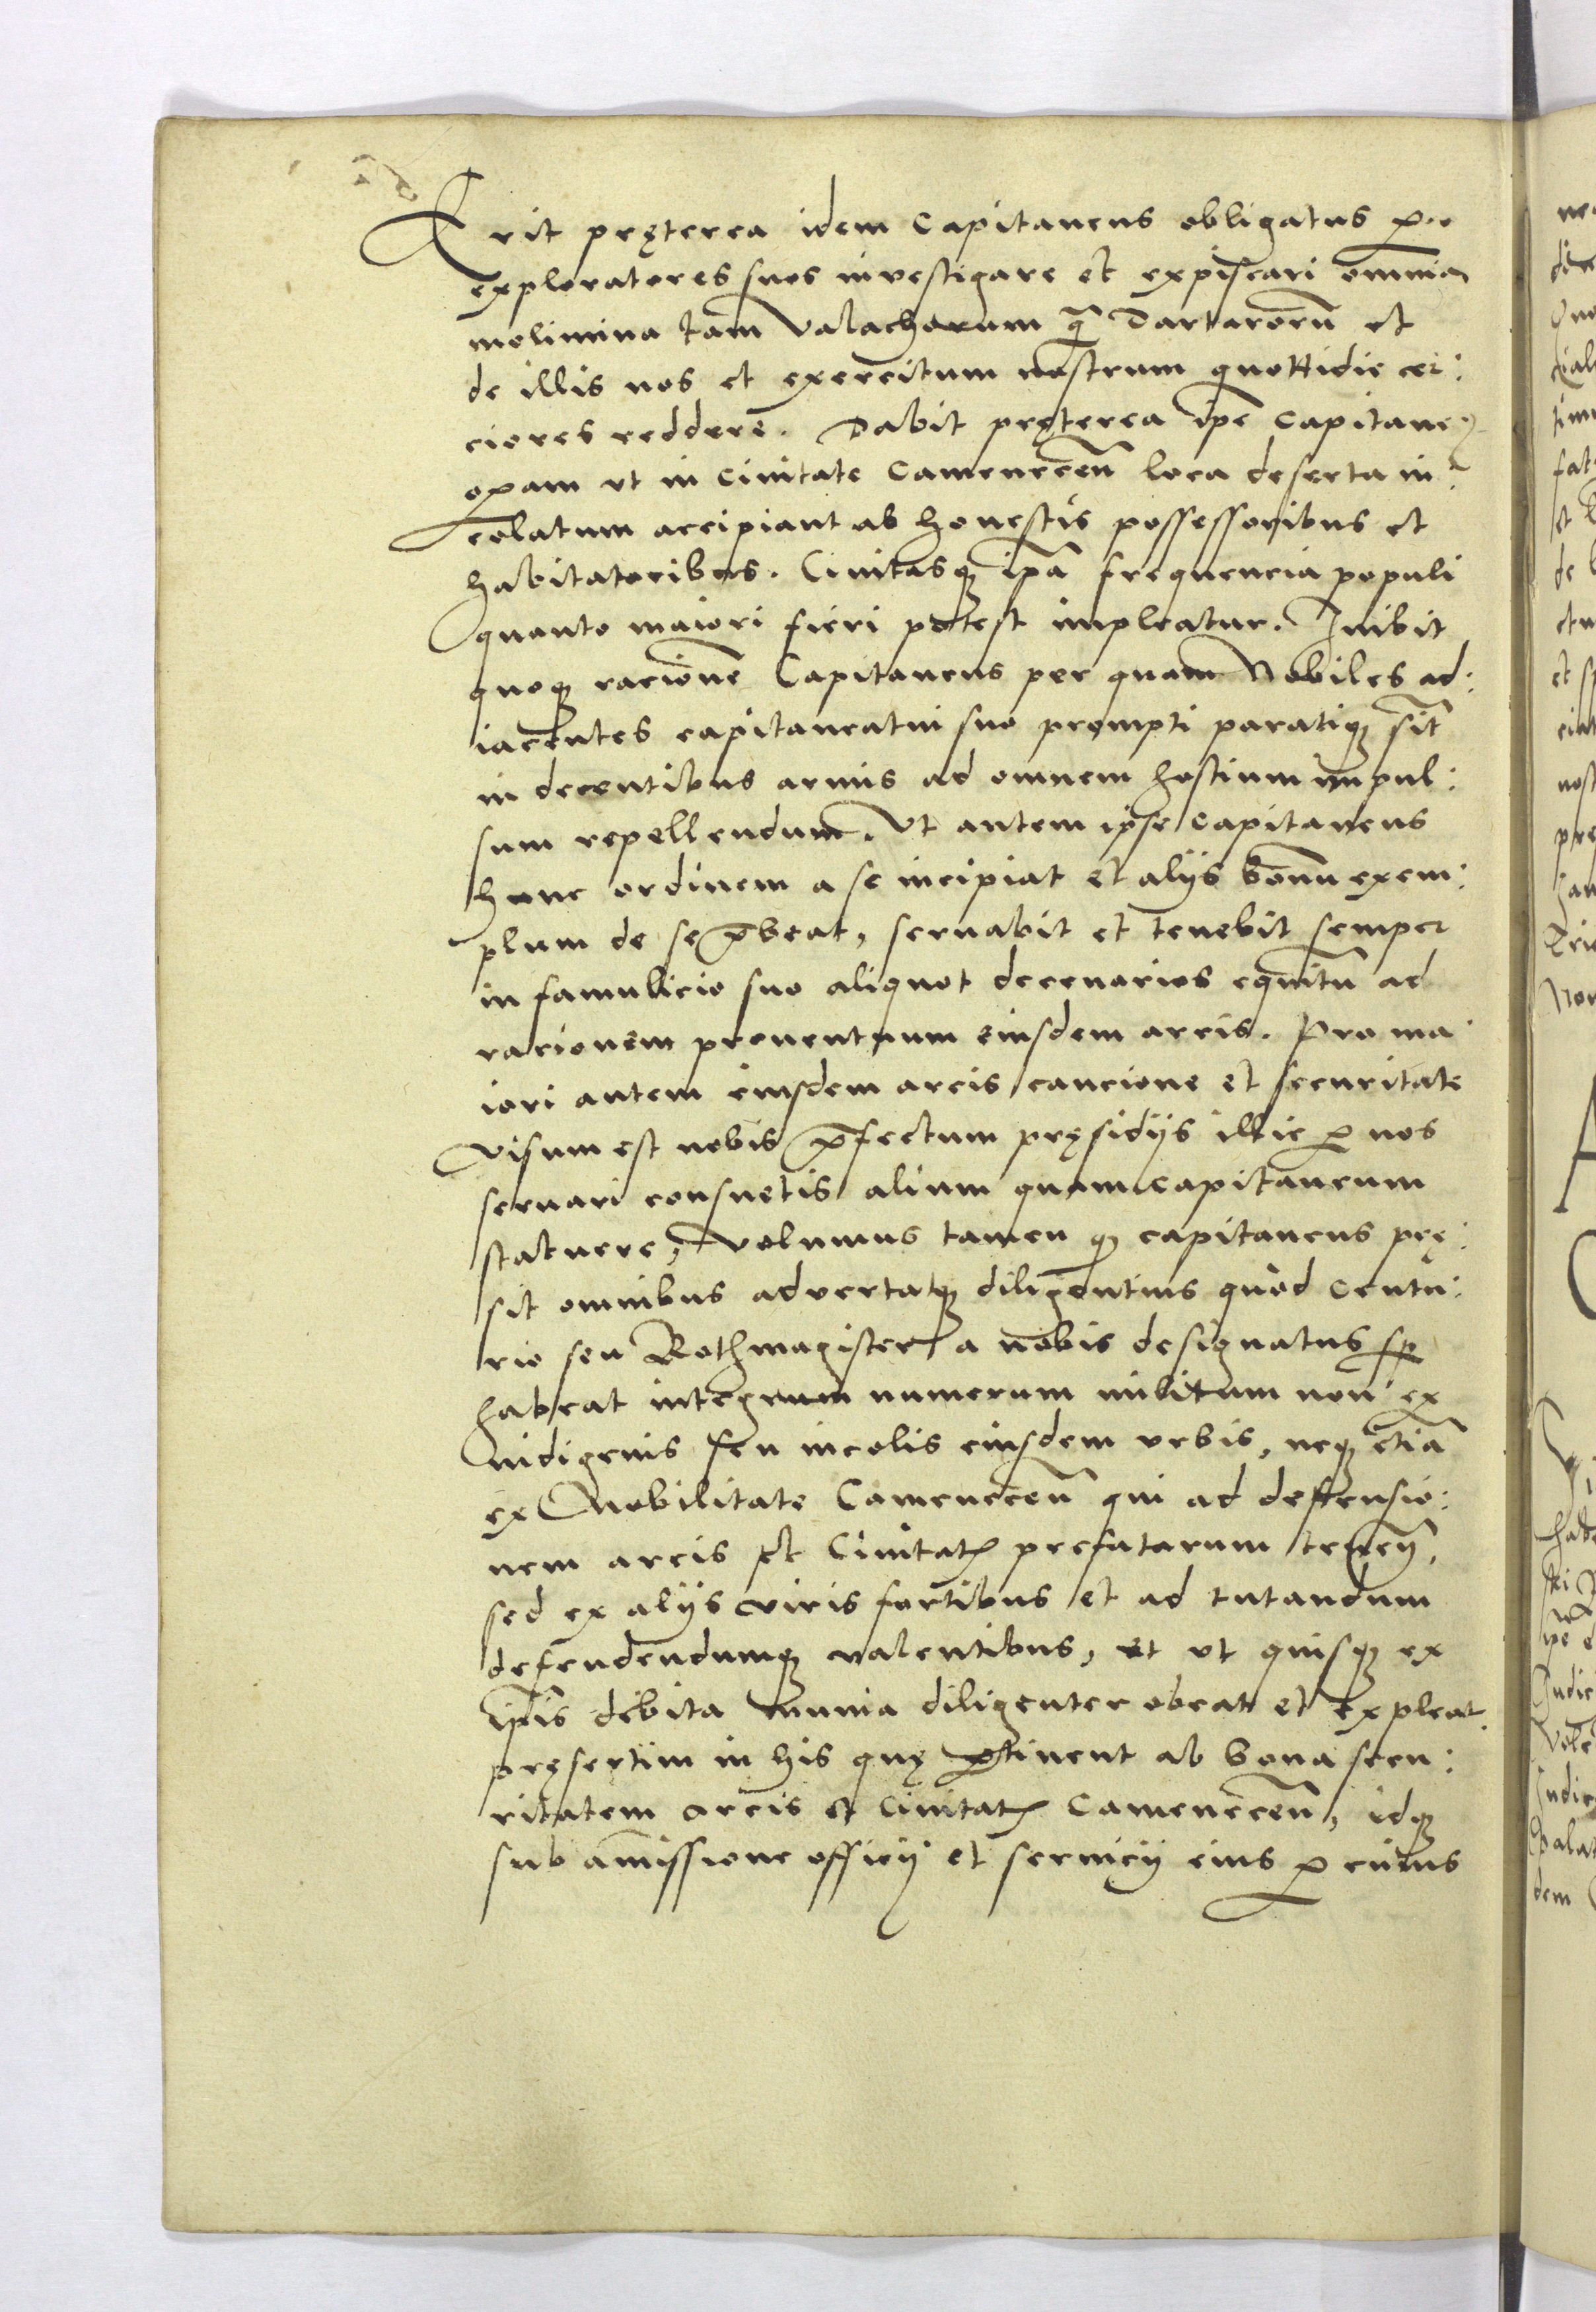 Erit pręterea idem Capitaneus obligatus ꝑ
exploratores suos investigare et expiscari omnia
molimina tam Valachorum q̃ Tartarorũ et
de illis nos et exercitum nostrum quottidie cer:
ciores reddere. Dabit pręterea ip̃e Capitane9
oꝑam ut in Civitate Camenecen̄ loca deserta in:
colatum accipiant ab honestis possessoribus et
habitatoribus. Civitasqꝫ ip̃a frequencia populi
quanto maiori fieri potest impleatur. Inibit
quoqꝫ racionẽ Capitaneus per quam Nobiles ad:
iacentes capitaneatui suo prompti paratiqꝫ sĩt
in decentibus armis ad omnem hostium impul:
sum repellendum. Ut autem ipse Capitaneus
hunc ordinem a se incipiat et alijs bonũ exem:
plum de se p̃beat, servabit et tenebit semper
in famulicio suo aliquot decenarios equitũ ad
racionem proventuum eiusdem arcis. Pro ma
iori autem eiusdem arcis caucione et securitate
visum est nobis p̃fectum pręsidijs illic ꝑ nos
servari consuetis alium quam capitaneum
statuere, volumus tamen qꝫ capitaneus prę:
sit omnibus advertatqꝫ diligentius quod Centu:
rio seu Rothmagister a nobis designatus sꝑ
habeat integrum numerum militum non ex
indigenis seu incolis eiusdem urbis, neqꝫ etiã
ex Nobilitate Camenecen̄ qui ad deffensio:
nem arcis et Civitatꝭ prefatarum
sed ex alijs viris fortibus et ad tutandum
defendendumqꝫ valentibus, et ut quisqꝫ ex
ip̃is debita munia diligenter obeat et expleat
pręsertim in his quę ꝑtinent ab bona secu:
ritatem arcis et Civitatꝭ Camenecen̄, idqꝫ
sub amissione officij et servicij eius ꝑ cuius